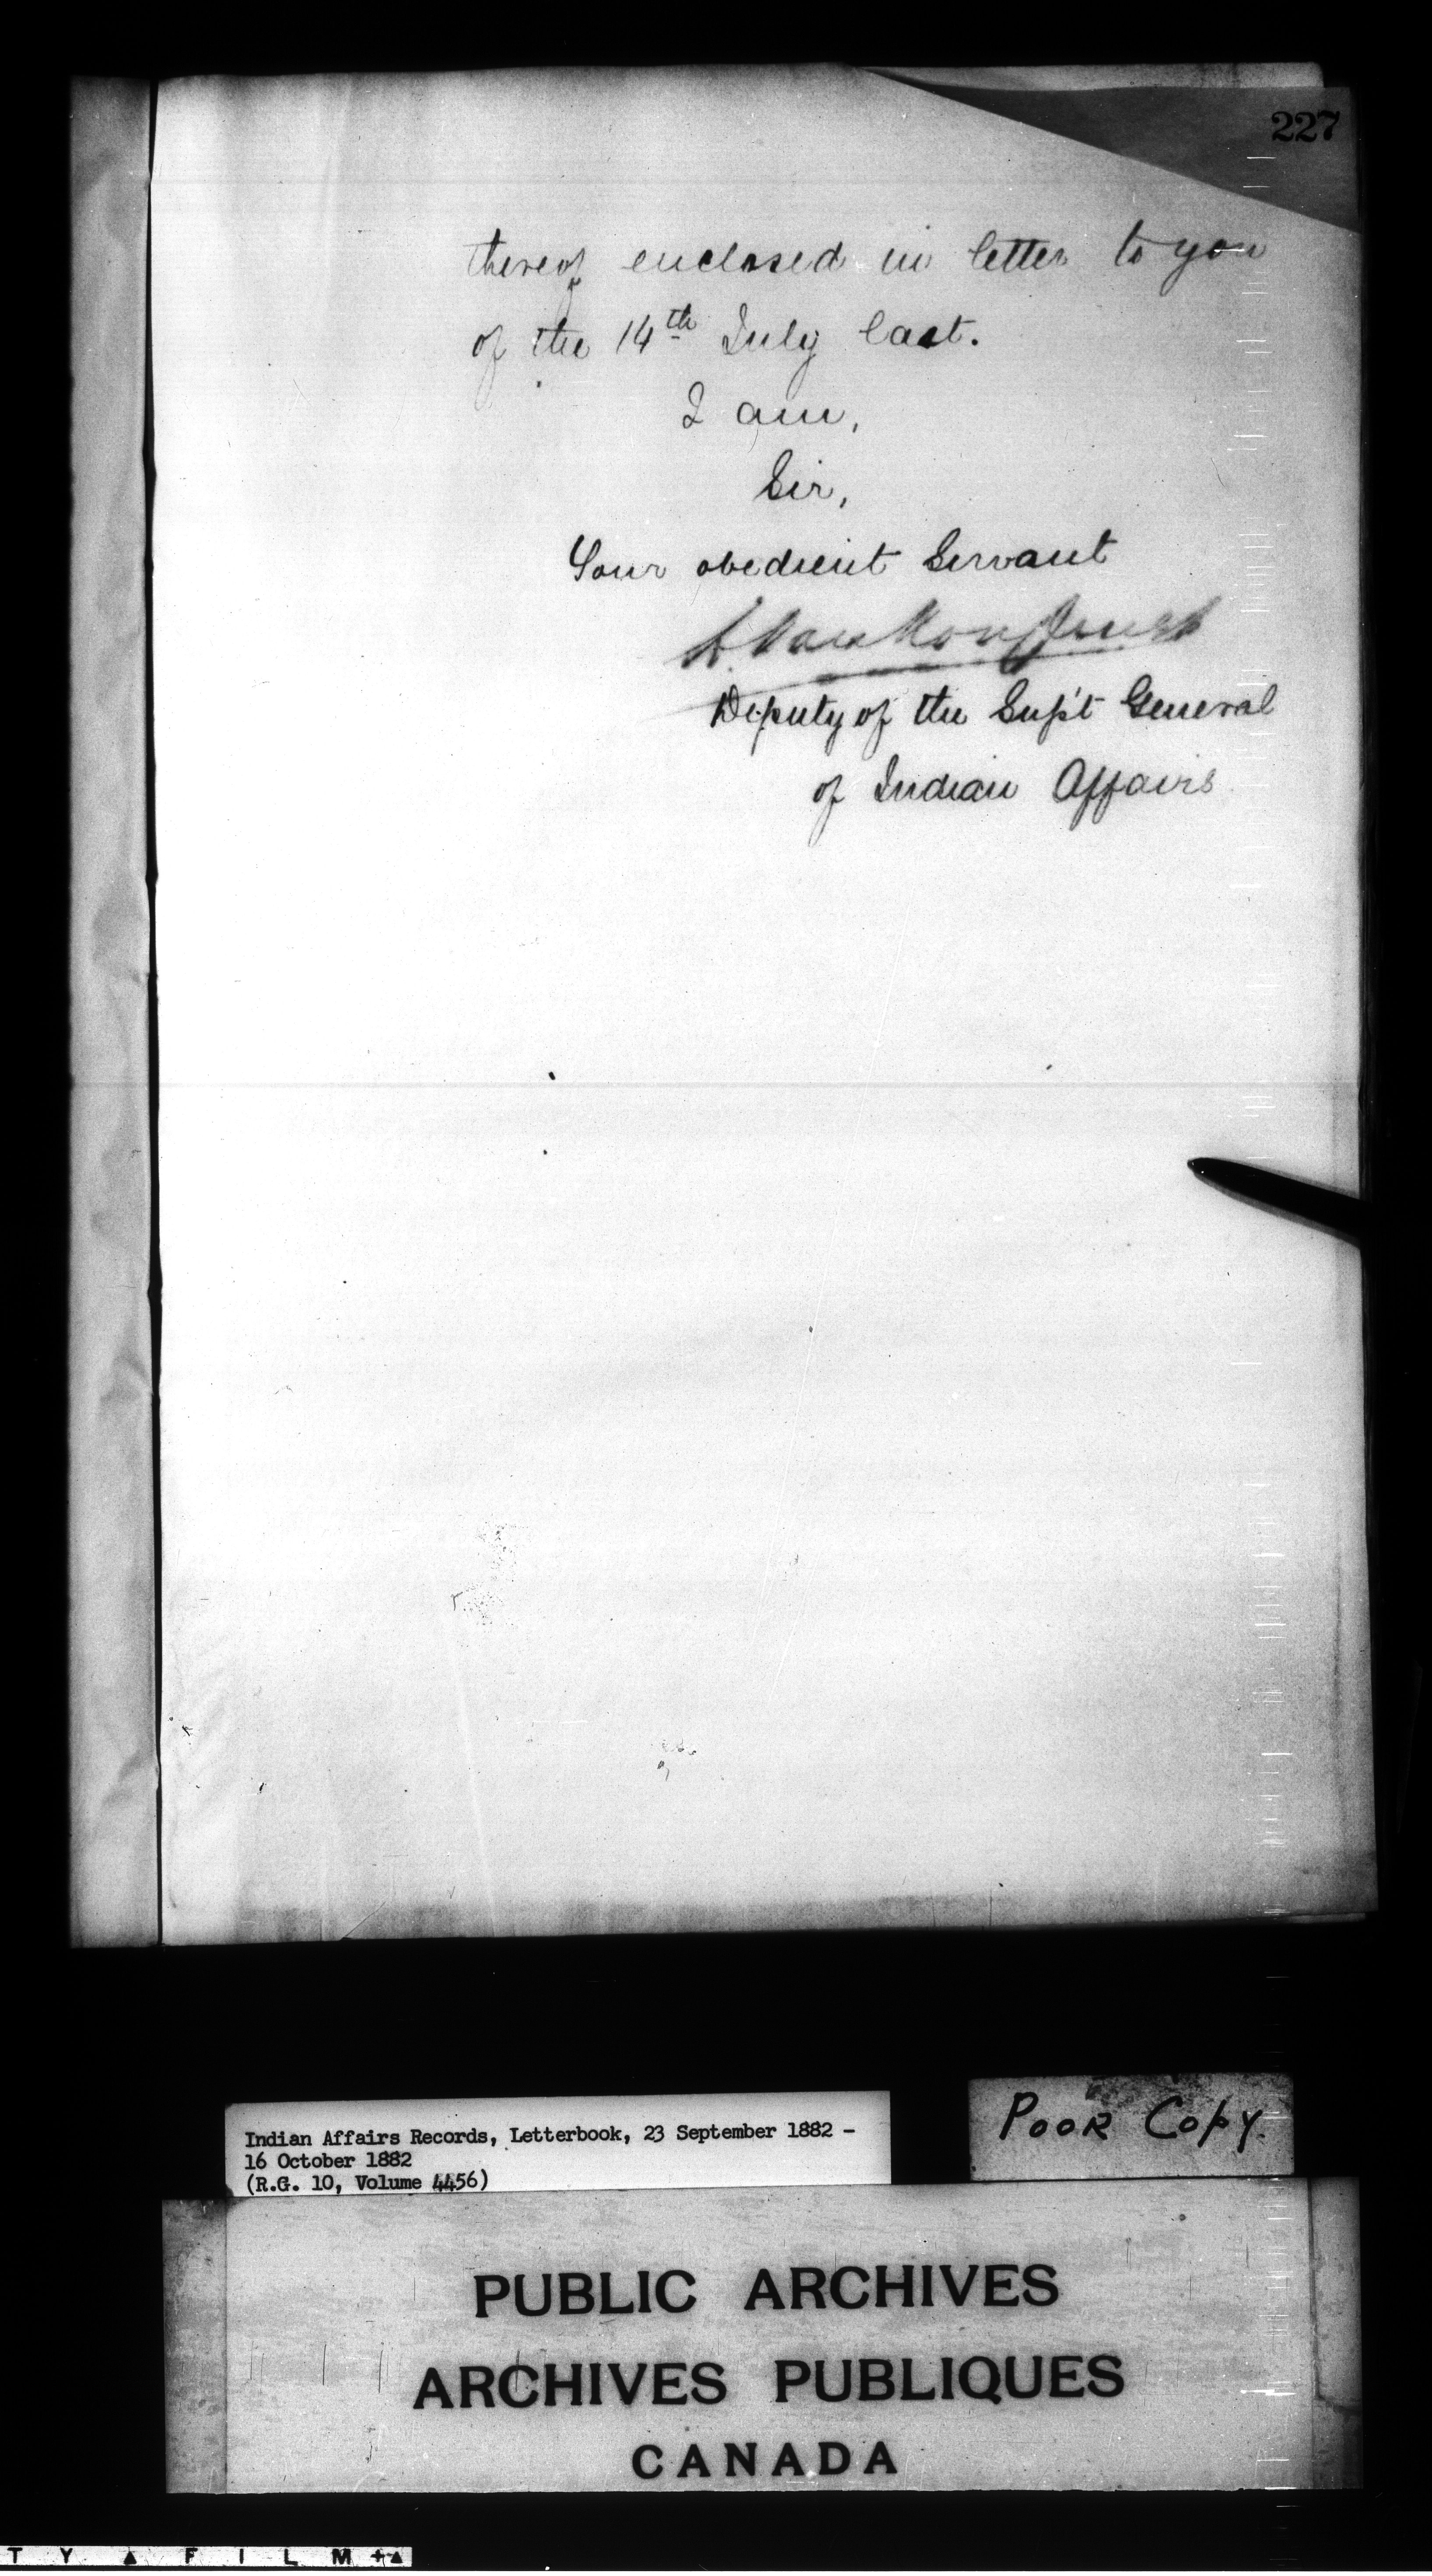 227
thereof enclosed in letter to you
of the 14th July last.
I am,
Sir,
Your obedient Servant
L. VanKoughnet
Deputy of the Sup't General
of Indian Affairs
Indian Affairs Records, Letterbook, 23 September 1882 -
16 October 1882
(R.G. 10, Volume 4456)
POOR COPY
PUBLIC ARCHIVES
ARCHIVES PUBLIQUES
CANADA
T Y ▲ F I L M + ▲